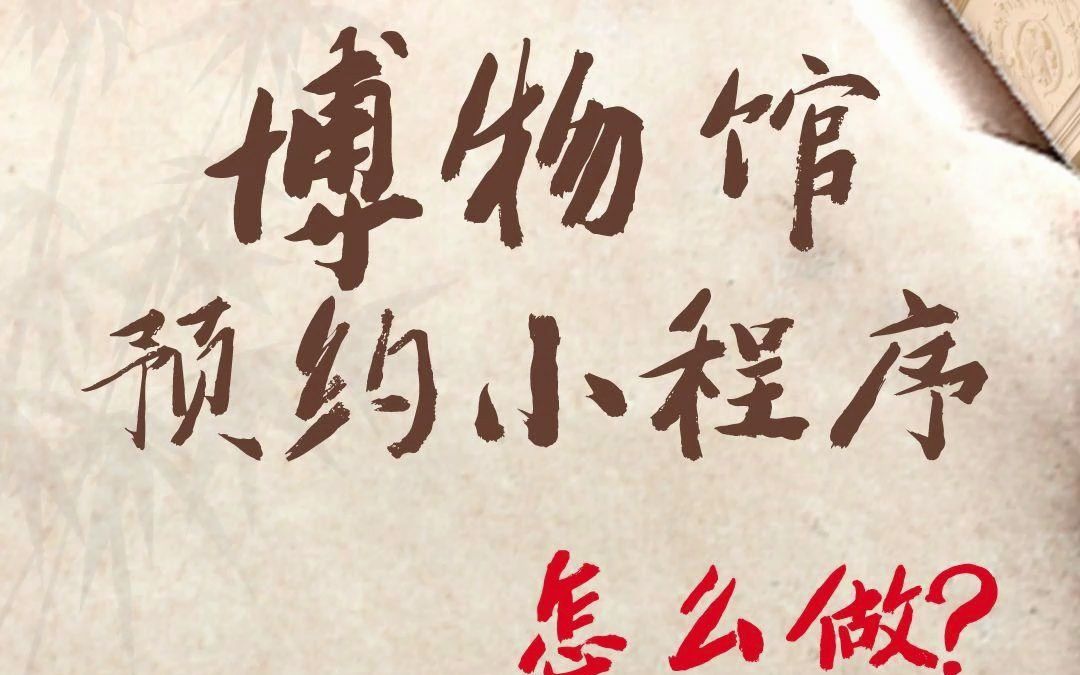 博物馆
预约小程序
怎么做?